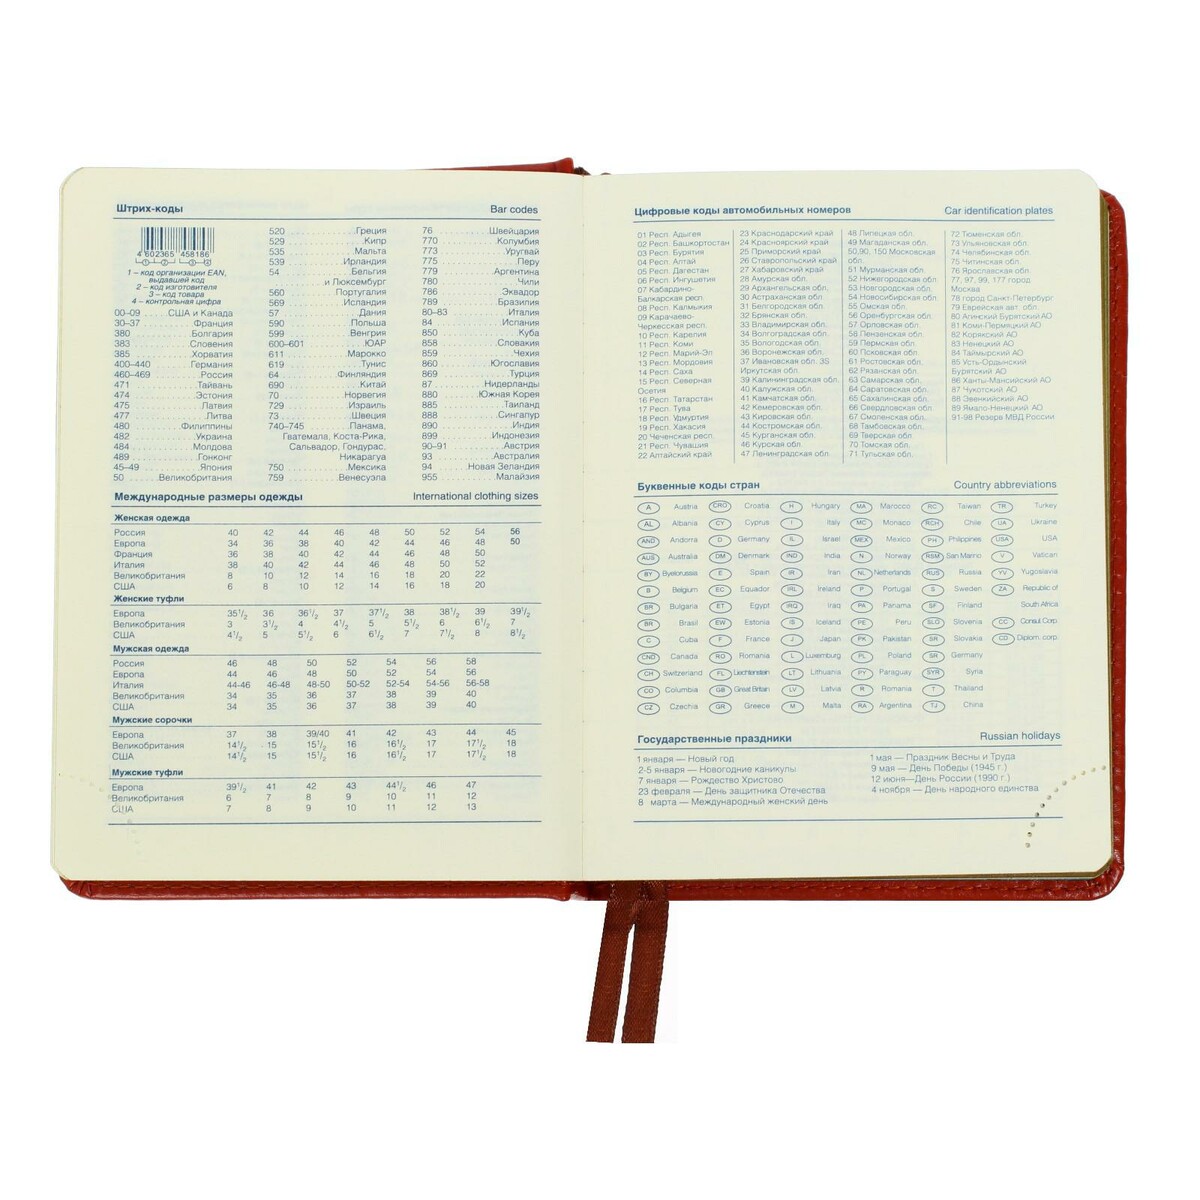 Штрих-коды Bar codes
4 602365 458186
1 – код организации EAN,
выдавшей код
2 – код изготовителя
3 – код товара
4 – контрольная цифра
00–09 США и Канада
30–37 Франция
380 Болгария
383 Словения
385 Хорватия
400–440 Германия
460–469 Россия
471 Тайвань
474 Эстония
475 Латвия
477 Литва
480 Филиппины
482 Украина
484 Молдова
489 Гонконг
45–49 Япония
50 Великобритания
520 Греция
529 Кипр
535 Мальта
539 Ирландия
54 Бельгия
и Люксембург
560 Португалия
569 Исландия
57 Дания
590 Польша
599 Венгрия
600–601 ЮАР
611 Марокко
619 Тунис
64 Финляндия
690 Китай
70 Норвегия
729 Израиль
73 Швеция
740–745 Панама,
Гватемала, Коста-Рика,
Сальвадор, Гондурас,
Никарагуа
750 Мексика
759 Венесуэла
76 Швейцария
770 Колумбия
773 Уругвай
775 Перу
779 Аргентина
780 Чили
786 Эквадор
789 Бразилия
80–83 Италия
84 Испания
850 Куба
858 Словакия
859 Чехия
860 Югославия
869 Турция
87 Нидерланды
880 Южная Корея
885 Таиланд
888 Сингапур
890 Индия
899 Индонезия
90–91 Австрия
93 Австралия
94 Новая Зеландия
955 Малайзия
Международные размеры одежды International clothing sizes
Женская одежда
Россия 40 42 44 46 48 50 52 54 56
Европа 34 36 38 40 42 44 46 48 50
Франция 36 38 40 42 44 46 48 50
Италия 38 40 42 44 46 48 50 52
Великобритания 8 10 12 14 16 18 20 22
США 6 8 10 12 14 16 18 20
Женские туфли
Европа 35 1/2 36 36 1/2 37 37 1/2 38 38 1/2 39 39 1/2
Великобритания 3 3 1/2 4 4 1/2 5 5 1/2 6 6 1/2 7
США 4 1/2 5 5 1/2 6 6 1/2 7 7 1/2 8 8 1/2
Мужская одежда
Россия 46 48 50 52 54 56 58
Европа 44 46 48 50 52 54 56
Италия 44-46 46-48 48-50 50-52 52-54 54-56 56-58
Великобритания 34 35 36 37 38 39 40
США 34 35 36 37 38 39 40
Мужские сорочки
Европа 37 38 39/40 41 42 43 44 45
Великобритания 14 1/2 15 15 1/2 16 16 1/2 17 17 1/2 18
США 14 1/2 15 15 1/2 16 16 1/2 17 17 1/2 18
Мужские туфли
Европа 39 1/2 41 42 43 44 1/2 46 47
Великобритания 6 7 8 9 10 11 12
США 7 8 9 10 11 12 13
Цифровые коды автомобильных номеров Car identification plates
01 Респ. Адыгея
02 Респ. Башкортостан
03 Респ. Бурятия
04 Респ. Алтай
05 Респ. Дагестан
06 Респ. Ингушетия
07 Кабардино-
Балкарская респ.
08 Респ. Калмыкия
09 Карачаево-
Черкесская респ.
10 Респ. Карелия
11 Респ. Коми
12 Респ. Марий-Эл
13 Респ. Мордовия
14 Респ. Саха
15 Респ. Северная
Осетия
16 Респ. Татарстан
17 Респ. Тува
18 Респ. Удмуртия
19 Респ. Хакасия
20 Чеченская респ.
21 Респ. Чувашия
22 Алтайский край
23 Краснодарский край
24 Красноярский край
25 Приморский край
26 Ставропольский край
27 Хабаровский край
28 Амурская обл.
29 Архангельская обл.
30 Астраханская обл.
31 Белгородская обл.
32 Брянская обл.
33 Владимирская обл.
34 Волгоградская обл.
35 Вологодская обл.
36 Воронежская обл.
37 Ивановская обл. 3S
Иркутская обл.
39 Калининградская обл.
40 Калужская обл.
41 Камчатская обл.
42 Кемеровская обл.
43 Кировская обл.
44 Костромская обл.
45 Курганская обл.
46 Курская обл.
47 Ленинградская обл.
48 Липецкая обл.
49 Магаданская обл.
50,90, 150 Московская
обл.
51 Мурманская обл.
52 Нижегородская обл.
53 Новгородская обл.
54 Новосибирская обл
55 Омская обл.
56 Оренбургская обл.
57 Орловская обл.
58 Пензенская обл.
59 Пермская обл.
60 Псковская обл.
61 Ростовская обл.
62 Рязанская обл.
63 Самарская обл.
64 Саратовская обл.
65 Сахалинская обл.
66 Свердловская обл.
67 Смоленская обл.
68 Тамбовская обл.
69 Тверская обл.
70 Томская обл.
71 Тульская обл.
72 Тюменская обл.
73 Ульяновская обл.
74 Челябинская обл.
75 Читинская обл.
76 Ярославская обл.
77, 97, 99, 177 город
Москва
78 город Санкт-Петербург
79 Еврейская авт. обл.
80 Агинский БурятскийАО
81 Коми-Пермяцкий АО
82 Корякский АО
83 Ненецкий АО
84 Таймырский АО
85 Усть-Ордынский
Бурятский АО
86 Ханты-Мансийский АО
87 Чукотский АО
88 Эвенкийский АО
89 Ямало-Ненецкий АО
91-98 Резерв МВД России
Буквенные коды стран Country abbreviations
A Austria CRO Croatia H Hungary MA Marocco RC Taiwan TR Turkey
AL Albania CY Cyprus I Italy MC Monaco RCH Chile UA Ukraine
AND Andorra D Germany IL Israel MEX Mexico PH Philippines USA USA
AUS Australia DM Denmark IND India N Norway RSM San Marino V Vatican
BY Byelorussia E Spain IR Iran NL Netherlands RUS Russia YV Yugoslavia
B Belgium EC Equador IRL Ireland P Portugal S Sweden ZA Republic of
BR Bulgaria ET Egypt IRQ Iraq PA Panama SF Finland South Africa
BR Brasil EW Estonia IS Iceland PE Peru SLO Slovenia CC Consul Corp
C Cuba F France J Japan PK Pakistan SR Slovakia CD Diplom. corp.
CND Canada RO Romania L Luxemburg PL Poland SR Germany
CH Switzerland FL Liechtenstein LT Lithuania PY Paraguay SYR Syria
CO Columbia GB Great Britian LV Latvia R Romania T Thailand
CZ Czechia GR Greece M Malta RA Argentina TJ China
Государственные праздники Russian holidays
1 января — Новый год
2-5 января — Новогодние каникулы
7 января — Рождество Христово
23 февраля — День защитника Отечества
8 марта — Международный женский день
1 мая — Праздник Весны и Труда
9 мая — День Победы (1945 г.)
12 июня—День России (1990 г.)
4 ноября — День народного единства